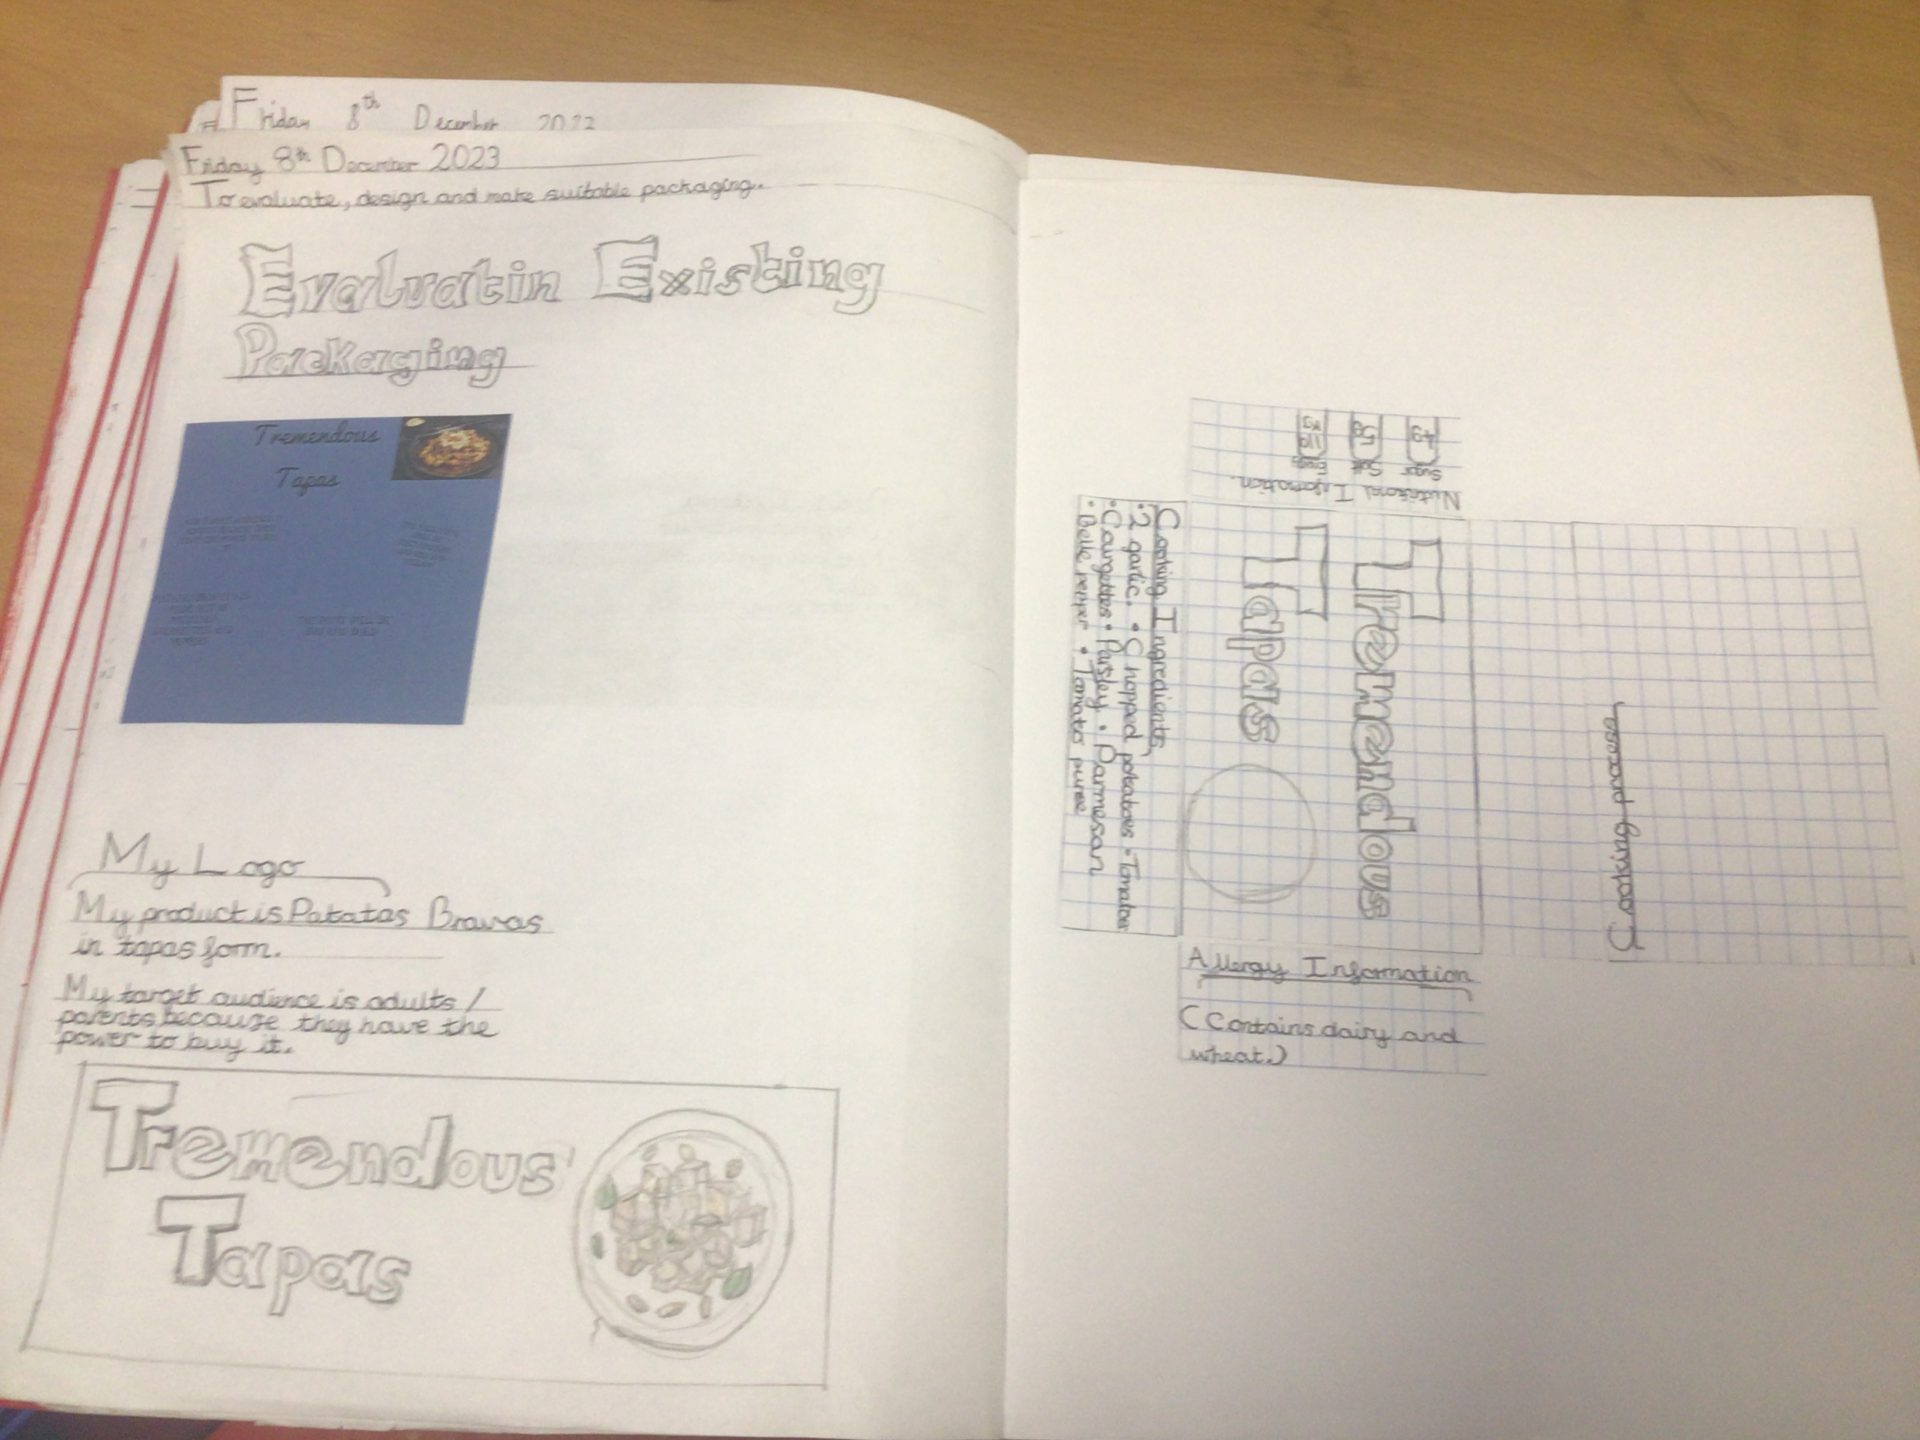 Friday 8th December
Friday 8th December 2023
To evaluate, design and make suitable packaging.
Evaluatin Existing
Packaging
Tremendous
Tapas
My Logo
My product is Patatas Bravas
in tapas form.
My target audience is adults /
parents because they have the
power to buy it.
Tremendous
Tapas
Nutritional Information.
Sugar
4g
Salt
5g
Cooking Ingredients
• 2 garlic. • Chopped potatoes • Tomatoes
• Courgettes • Parsley • Parmesan
• Belle pepper • Tomatos puree
Tremendous
Tapas
Cooking process
Allergy Information
(Contains dairy and
wheat.)